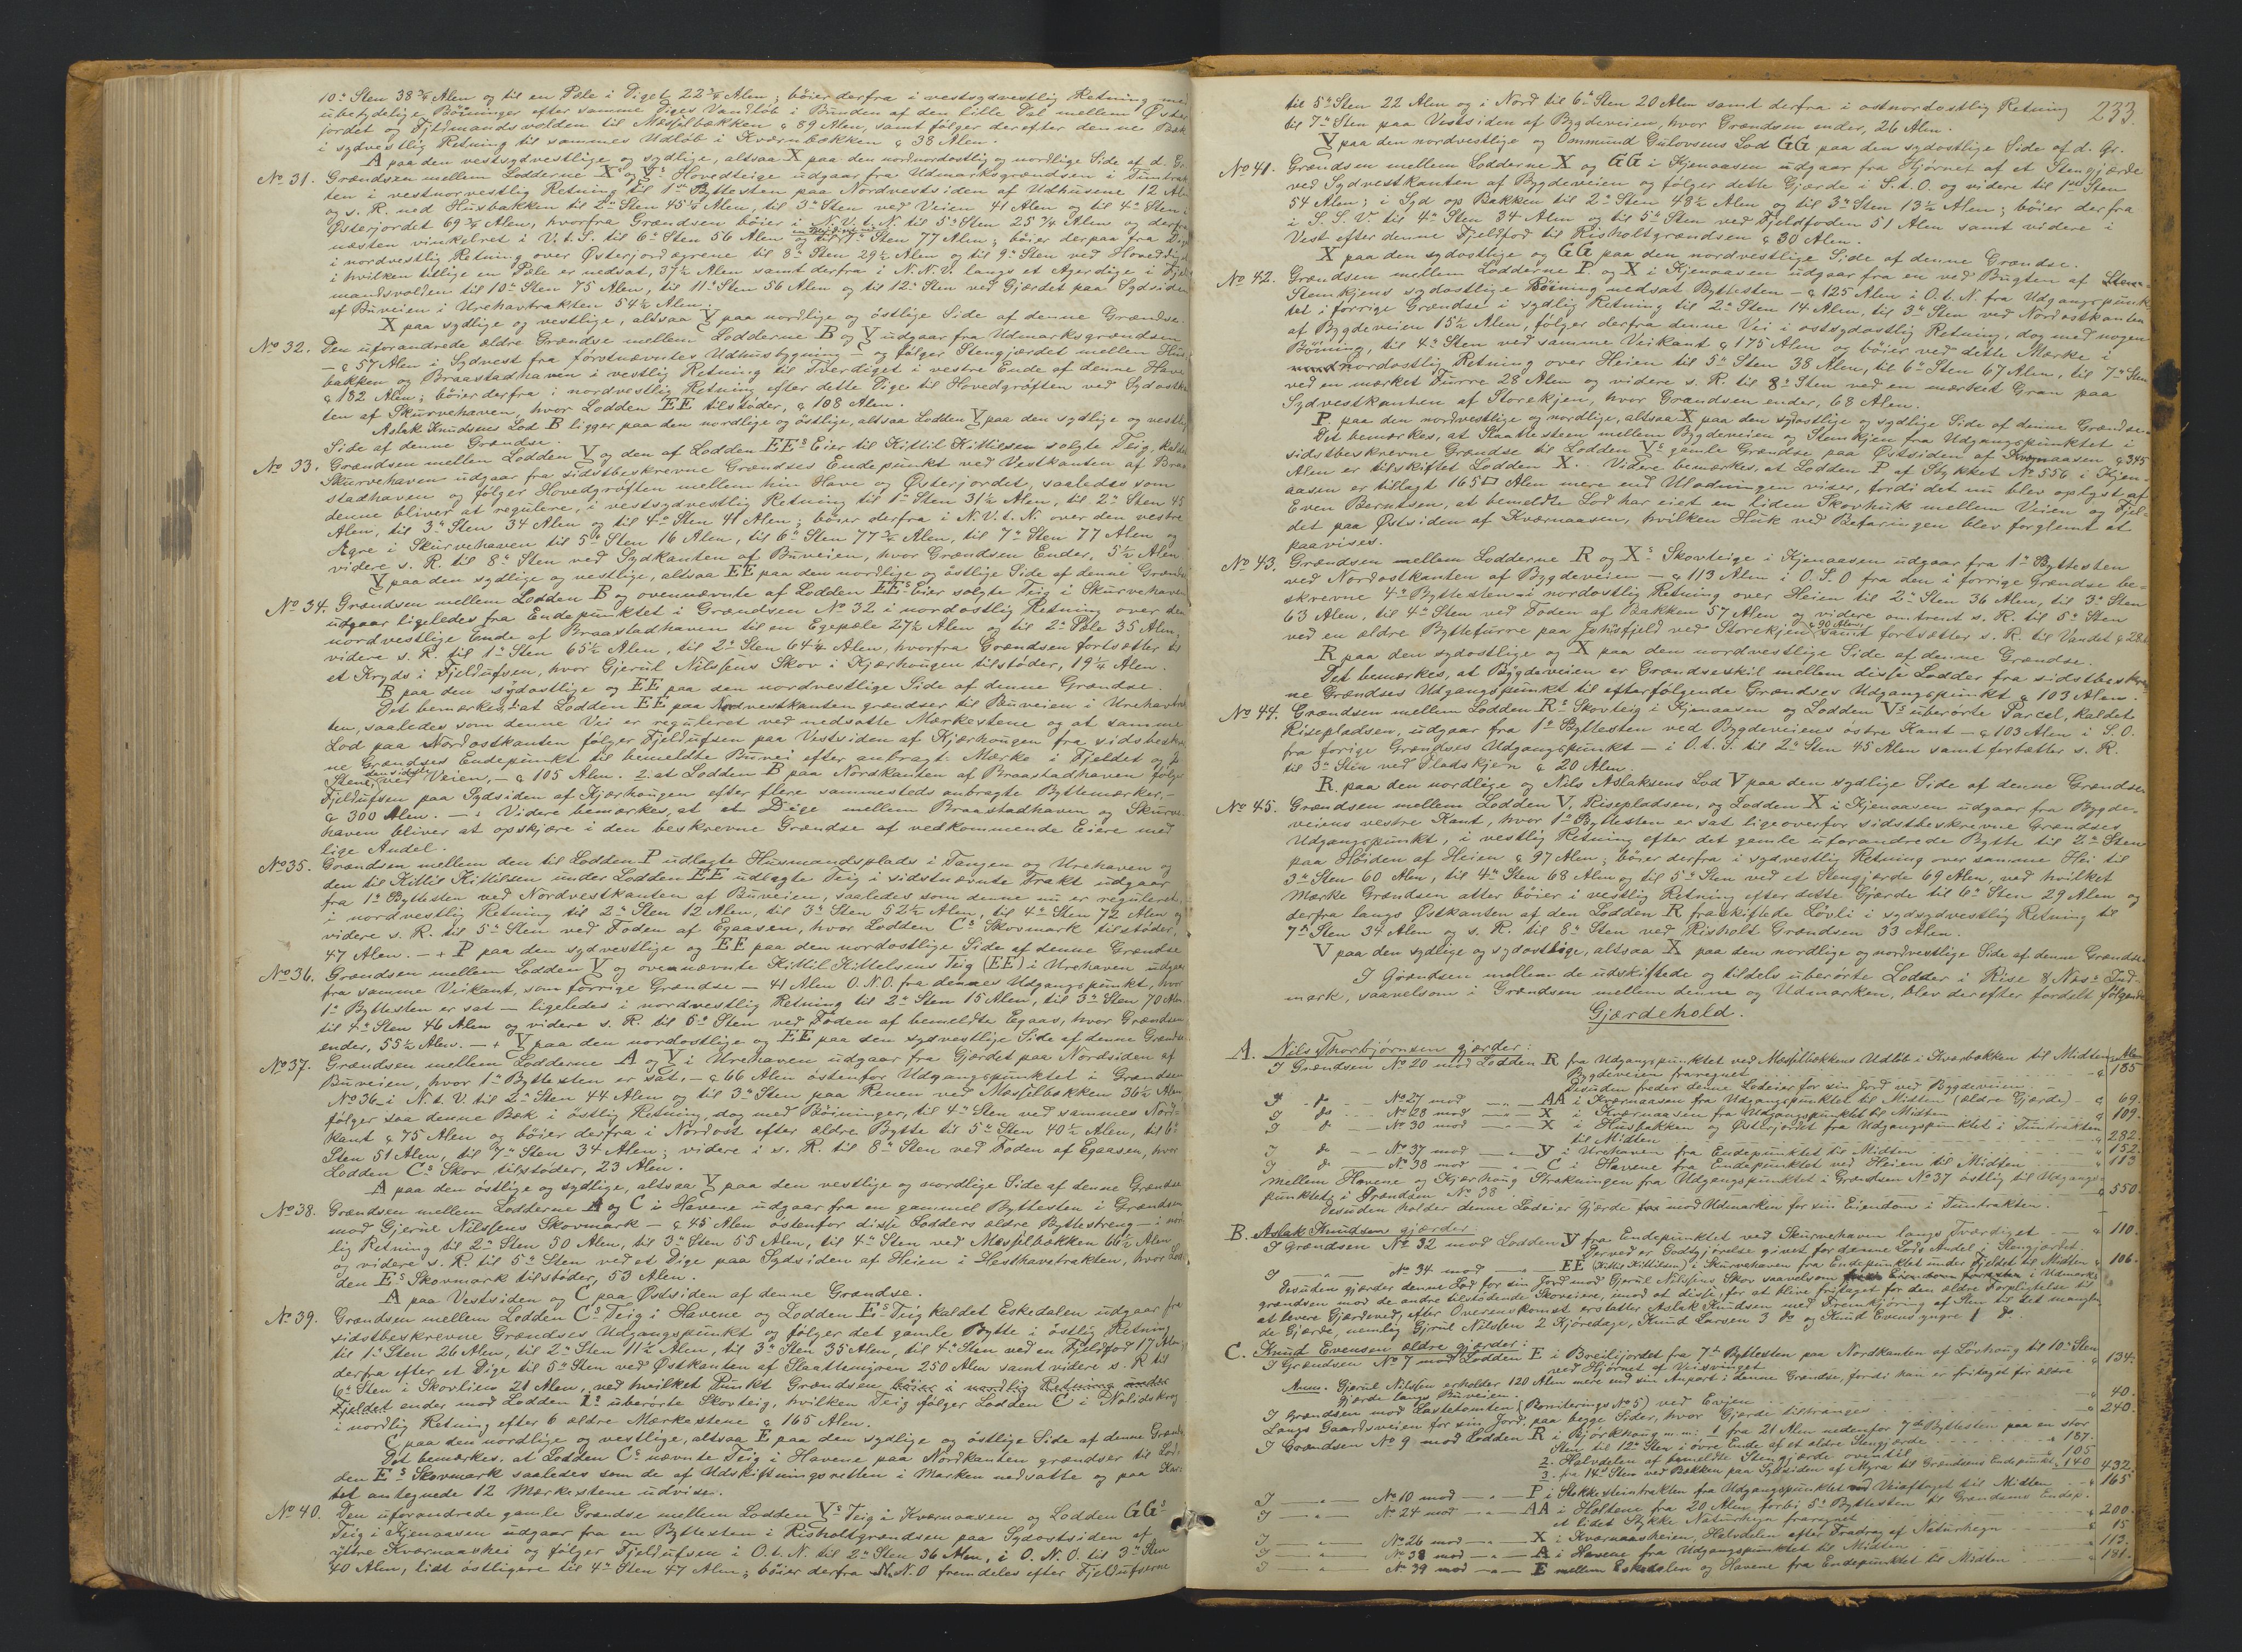 10de Sten 38 3/4 Alen og til en Pæle i Diget 22 3/4 Alen; bøier derfra i vestsydvestlig Retning med
ubetydelige Bøininger efter samme Diges Vandløb i Bunden af den lille Dal mellem Øster-
jordet og Fjeldmandsvolden til Mæsselbækken à 89 Alen, samt følger derefter denne Bæk
i sydvestlig Retning til sammes Udløb i Kværnbækken à 38 Alen.
A paa den vestsydvestlige og sydlige, altsaa X paa den nordnordostlig og nordlige Side af d. Gr.
No 31. Grændsen mellem Lodderne X's og Y's Hovedteige udgaar fra Udmarksgrændsen i Tuntrak
ten i vestnorvestlig Retning til 1ste Byttesten paa Nordvestsiden af Udhusene 12 Alen
og s. R. ned Husbakken til 2den Sten 45 1/2 Alen, til 3die Sten ved Veien 41 Alen og til 4de Sten i
Østerjordet 69 3/4 Alen, hvorfra Grændsen bøier i N. V. t. N. til 5te Sten 25 3/4 Alen og derfra
næsten vinkelret i V. t. S. til 6te Sten 56 Alen og til 7de Sten 77 Alen; bøier derpaa fra
i nordvestlig Retning over Østerjordagrene til 8de Sten 29 1/2 Alen og til 9de Sten ved Hoveddiget
i hvilken tillige en Pæle er nedsat, 37 1/2 Alen samt derfra i N. N. V. langs et Agerdige i Fjeld
mandsvolden til 10de Sten 75 Alen, til 11te Sten 56 Alen og til 12te Sten ved Gjærdet paa Sydsiden
af Buveien i Urehavtrakten 54 1/2 Alen.
X paa sydlige og vestlige, altsaa Y paa nordlige og östlige Side af denne Grændse.
No 32. Den uforandrede ældre Grændse mellem Lodderne B og Y udgaar fra Udmarksgrændsen
— à 57 Alen i Sydvest fra førstnævntes Udhusbygning — og følger Stengjærdet mellem Hus
bakken og Braastadhaven i vestlig Retning til Tverdiget i vestre Ende af denne Have
à 132 Alen; bøier derfra i nordvestlig Retning efter dette Dige til Hovedgrøften ved Sydostkan
ten af Skurvehaven, hvor Lodden EE tilstøder, à 108 Alen.
Aslak Knudsens Lod B ligger paa den nordlige og östlige, altsaa Lodden Y paa den sydlige og vestlige
Side af denne Grændse.
No 33. Grændsen mellem Lodden Y og den af Lodden EE's Eier til Kittil Kittilsen solgte Teig, kaldet
Skurvehaven udgaar fra sidstbeskrevne Grændses Endepunkt ved Vestkanten af Braa
stadhaven og følger Hovedgrøften mellem hin Have og Østerjordet, saaledes som
denne bliver at regulere, i vestsydvestlig Retning til 1ste Sten 31 1/2 Alen, til 2den Sten 45
Alen, til 3die Sten 34 Alen og til 4de Sten 41 Alen; bøier derfra i N. V. t. N. over den vestre
Agre i Skurvehaven til 5te Sten 16 Alen, til 6te Sten 77 3/4 Alen, til 7de Sten 77 Alen og
videre s. R. til 8de Sten ved Sydkanten af Buveien, hvor Grændsen Ender, 5 1/2 Alen
Y paa den sydlige og vestlige, altsaa EE paa den nordlige og östlige Side af denne Grændse
No 34. Grændsen mellem Lodden B og ovennævnte af Lodden EE's Eier solgte Teig i Skurvehaven
udgaar ligeledes fra Endepunktet i Grændsen No 32 i nordostlig Retning over den
nordvestlige Ende af Braastadhaven til en Egepæle 27 1/2 Alen og til 2den Pæle 35 Alen,
videre s. R. til 1ste Sten 65 1/2 Alen, til 2den Sten 64 1/4 Alen, hvorfra Grændsen fortsætter til
et Kryds i Fjeldufsen, hvor Gjerul Nilssens Skov i Kjærhougen tilstøder, 19 1/2 Alen.
B paa den sydostlige og EE paa den nordvestlige Side af denne Grændse.
Det bemærkes, 1. at Lodden EE paa Nordvestkanten grændser til Buveien i Urehavtrak
ten, saaledes som denne Vei er reguleret ved nedsatte Mærkestene og at samme
Lod paa Nordostkanten følger Fjeldufsen paa Vestsiden af Kjærhougen fra sidstbeskrev
ne Grændses Endepunkt til bemeldte Buvei efter anbragt Mærke i Fjeldet og
Stene, den sidste ved Veien, — à 105 Alen. 2. at Lodden B paa Nordkanten af Braastadhaven følger
Fjeldufsen paa Sydsiden af Kjærhougen efter flere sammesteds anbragte Byttemærker, —
à 300 Alen. — Videre bemærkes, at et Dige mellem Braastadhaven og Skurve-
haven bliver at opskjære i den beskrevne Grændse af vedkommende Eiere med
lige Andel.
No 35. Grændsen mellem den til Lodden P udlagte Husmandsplads i Tangen og Urehaven og
den til Kittil Kittilsen under Lodden EE udlagte Teig i sidstnævnte Trakt udgaar
fra 1ste Byttesten ved Nordvestkanten af Buveien, saaledes som denne nu er reguleret,
i nordvestlig Retning til 2den Sten 12 Alen, til 3die Sten 52 1/2 Alen, til 4de Sten 72 Alen og
videre s. R. til 5te Sten ved Foden af Egaasen, hvor Lodden C's Skovmark tilstøder,
47 Alen. — + P paa den sydvestlige og EE paa den nordostlige Side af denne Grændse
No 36. Grændsen mellem Lodden Y og ovennævnte Kittil Kittelsens Teig (EE) i Urehaven udgaar
fra samme Veikant, som forrige Grændse — 41 Alen O. N. O. fra dennes Udgangspunkt, hvor
1ste Byttesten er sat — ligeledes i nordvestlig Retning til 2den Sten 15 Alen, til 3die Sten 70 Alen
til 4de Sten 46 Alen og videre s. R. til 5te Sten ved Foden af bemeldte Egaas, hvor Grændsen
ender, 55 1/2 Alen. — + Y paa den nordostlige og EE paa den sydvestlige Side af denne Grændse
No 37. Grændsen mellem Lodderne A og Y i Urehaven udgaar fra Gjærdet paa Nordsiden af
Buveien, hvor 1ste Byttesten er sat, — à 66 Alen östenfor Udgangspunktet i Grændsen
No 36 — i N. t. V. til 2den Sten 44 Alen og til 3die Sten paa Renen ved Mæsselbækken 36 1/2 Alen
følger saa denne Bæk i östlig Retning, dog med Bøininger, til 4de Sten ved sammes Nord-
kant à 75 Alen og bøier derfra i Nordost efter ældre Bytte til 5te Sten 40 1/2 Alen, til 6te
Sten 51 Alen, til 7de Sten 34 Alen; videre i s. R. til 8de Sten ved Foden af Egaasen, hvor
Lodden C's Skov tilstøder, 23 Alen.
A paa den östlige og sydlige, altsaa Y paa den vestlige og nordlige Side af denne Grændse
No 38. Grændsen mellem Lodderne A og C i Havene udgaar fra en gammel Byttesten i Grændsen
mod Gjerul Nilssens Skovmark — à 45 Alen östenfor disse Lodders ældre Byttestreng — i nord
lig Retning til 2den Sten 50 Alen, til 3die Sten 55 Alen, til 4de Sten ved Mæsselbækken 66 1/2 Alen
og videre s. R. til 5te Sten ved et Dige paa Sydsiden af Heien i Hesthavetrakten, hvor Lod
den E's Skovmark tilstøder, 53 Alen.
A paa Vestsiden og C paa Østsiden af denne Grændse.
No 39. Grændsen mellem Lodden C's Teig i Havene og Lodden E's Teig kaldet Eskedalen udgaar fra
sidstbeskrevne Grændses Udgangspunkt og følger det gamle Bytte i östlig Retning
til 1ste Sten 26 Alen, til 2den Sten 11 1/2 Alen, til 3die Sten 35 Alen, til 4de Sten ved en Fjeldfod 17 Alen;
derfra efter et Dige til 5te Sten ved Østkanten af Slaattemyren 250 Alen samt videre s. R til
6te Sten i Skovlien 21 Alen, ved hvilket Punkt Grændsen bøier i nordlig Retning under
Fjeldet ender mod Lodden I's uberørte Skovteig, hvilken Teig følger Lodden C i
i nordlig Retning efter 6 ældre Mærkestene à 165 Alen.
C paa den nordlige og vestlige, altsaa E paa den sydlige og östlige Side af denne Grændse
Det bemærkes, at Lodden C's nævnte Teig i Havene paa Nordkanten grændser til Lod
den E's Skovmark saaledes som de af Udskiftningsretten i Marken nedsatte og paa Kar-
tet antegnede 12 Mærkestene udvise.
No 40. Den uforandrede gamle Grændse mellem Lodden V's Teig i Kværnaasen og Lodden GG's
Teig i Kjenaasen udgaar fra en Byttesten i Risholtgrændsen paa Sydostsiden af
ytre Kværnaashei og følger Fjeldufsen i O. t. N. til 2den Sten 36 Alen, i O. N. O. til 3die Sten
40 Alen, lidt östligere til 4de Sten 47 Alen; bøier derfra N. N. O fremdeles efter Fjeldufserne
233
til 5te Sten 22 Alen og i Nord til 6te Sten 20 Alen samt derfra i ostnordostlig Retning
til 7de Sten paa Vestsiden af Bygdeveien, hvor Grændsen ender, 26 Alen.
V paa den nordvestlige og Ommund Gulovsens Lod GG paa den sydostlige Side af d. Gr.
No 41. Grændsen mellem Lodderne X og GG i Kjenaasen udgaar fra Hjørnet af et Stengjærde
ved Sydvestkanten af Bygdeveien og følger dette Gjærde i S. t. O. og videre til 1ste Sten
54 Alen; i Syd op Bakken til 2den Sten 48 1/2 Alen og til 3die Sten 13 1/2 Alen; bøier derfra
i S. S. V. til 4de Sten 34 Alen og til 5te Sten ved Fjeldfoden 51 Alen samt videre i
Vest efter denne Fjeldfod til Risholtgrændsen à 30 Alen.
X paa den sydostlige og GG paa den nordvestlige Side af denne Grændse.
No 42. Grændsen mellem Lodderne P og X i Kjenaasen udgaar fra en ved Bugten af
Stemkjens sydostlige Bøining nedsat Byttesten — à 125 Alen i O. t. N. fra Udgangspunk-
tet i forrige Grændse i sydlig Retning til 2den Sten 14 Alen, til 3die Sten ved Nordostkanten
af Bygdeveien 15 1/2 Alen, følger derfra denne Vei i ostsydostlig Retning, dog med nogen
Bøining, til 4de Sten ved samme Veikant à 175 Alen og bøier ved dette Mærke i
nordostlig Retning over Heien til 5te Sten 38 Alen, til 6te Sten 67 Alen, til 7de Sten
ved en mærket Furre 28 Alen og videre s. R. til 8de Sten ved en mærket Gran paa
Sydvestkanten af Storekjen, hvor Grændsen ender, 68 Alen.
P. paa den nordvestlige og nordlige, altsaa X paa den sydostlige og sydlige Side af denne Grændse.
Det bemærkes, at Slaattesteen mellem Bygdeveien og Stemkjen fra Udgangspunktet i
sidstbeskrevne Grændse til Lodden V's gamle Grændse paa Østsiden af Kværnaasen à 345
Alen er tilskiftet Lodden X. Videre bemærkes, at Lodden P af Stykket No 556 i Kjen-
aasen er tillagt 165 □ Alen mere end Ulodningen viser, fordi det nu blev oplyst af
Even Berntsen, at bemeldte Lod har eiet en liden Skovhuk mellem Veien og Fjel-
det paa Østsiden af Kværnaasen, hvilken Huk ved Befaringen blev forglemt at
paavises.
No 43. Grændsen mellem Lodderne R og X's Skovteige i Kjenaasen udgaar fra 1ste Byttesten
ved Nordostkanten af Bygdeveien — à 113 Alen i O. S. O fra den i forrige Grændse be-
skrevne 4de Byttesten — i nordostlig Retning over Heien til 2den Sten 36 Alen, til 3die Sten
63 Alen, til 4de Sten ved Foden af Bakken 57 Alen og videre omtrent s. R. til 5te Sten
ved en ældre Byttefurre paa Johsfjeld ved Storekjen à 90 Alen samt fortsætter s. R. til Vandet à 28
R paa den sydostlige og X paa den nordvestlige Side af denne Grændse.
Det bemærkes, at Bygdeveien er Grændseskil mellem disse Lodder fra sidstbeskrev-
ne Grændses Udgangspunkt til efterfølgende Grændses Udgangspunkt à 103 Alen.
No 44. Grændsen mellem Lodden R's Skovteig i Kjenaasen og Lodden V's uberørte Parcel, kaldet
Risepladsen, udgaar fra 1ste Byttesten ved Bygdeveiens östre Kant — à 103 Alen i S. O.
fra forige Grændses Udgangspunkt — i O. t. S. til 2den Sten 45 Alen samt fortsætter s. R.
til 3die Sten ved Pladskjen à 20 Alen.
R. paa den nordlige og Nils Aslaksens Lod V paa den sydlige Side af denne Grændse
No 45. Grændsen mellem Lodden V, Risepladsen, og Lodden X i Kjenaasen udgaar fra Bygde-
veiens vestre Kant, hvor 1ste Byttesten er sat ligeoverfor sidstbeskrevne Grændses
Udgangspunkt, i vestlig Retning efter det gamle uforandrede Bytte til 2den Sten
paa Høiden af Heien à 97 Alen; bøier derfra i sydvestlig Retning over samme Hei til
3die Sten 60 Alen, til 4de Sten 68 Alen og til 5te Sten ved et Stengjærde 69 Alen, ved hvilket
Mærke Grændsen atter bøier i vestlig Retning efter dette Gjærde til 6te Sten 29 Alen og
derfra langs Østkanten af den Lodden R fraskiftede Løvli i sydsydvestlig Retning til
7de Sten 34 Alen og s. R. til 8de Sten ved Risholt Grændsen 33 Alen.
V paa den sydlige og sydostlige, altsaa X paa den nordlige og nordvestlige Side af denne Grændse
I Grændsen mellem de udskiftede og tildels uberørte Lodder i Rise & Næs's Ind-
mark, saavelsom i Grændsen mellem denne og Udmarken, blev derefter fordelt følgende
Gjærdehold.
A. Nils Thorbjørnsen gjærder: Alen
I Grændsen No 20 mod Lodden R fra Udgangspunktet ved Mæsselbækkens Udløb i Kværbækken til Midten,
Bygdeveien fraregnet à 185
Desuden freder denne Lodeier for sin Jord ved Bygdeveien.
I do No 27 mod — AA i Kværnaasen fra Udgangspunktet til Midten (ældre Gjærde) - à 69.
I do No 28 mod — X i Kværnaasen fra Udgangspunktet til Midten à 109.
I do No 30 mod — X i Husbakken og Østerjordet fra Udgangspunktet i Tuntrakten
til Midten " 282.
I do No 37 mod — Y i Urehaven fra Endepunktet til Midten " 152.
I do No 38 mod — C i Havene fra Endepunktet ved Heien til Midten " 113
Mellem Havene og Kjærhoug Strækningen fra Udgangspunktet i Grændsen No 37 östlig til Udgangs-
punktet i Grændsen No 38 à 550.
Desuden holder denne Lodeier Gjærde mod Udmarken for sin Eiendom i Tuntrakten.
B. Aslak Knudsen gjærder:
I Grændsen No 32 mod Lodden Y fra Endepunktet ved Skurvehaven langs Tværdiget " 110.
Derved er Godtgjørelse givet for denne Lods Andel i Stengjærdet.
I — No 34 mod — EE (Kittil Kittilsen) i Skurvehaven fra Endepunktet under Fjeldet til Midten " 106.
Desuden gjærder denne Lod for sin Jord mod Gjerul Nilssens Skov saavelsom i Udmarks
grændsen mod de andre tilstødende Skoveiere, imod at disse, for at blive fritaget for den ældre Forpligtelse til
at levere Gjærdeved, efter Overenskomst erstatter Aslak Knudsen med Fremkjøring af Sten til det manglen
de Gjærde, nemlig Gjerul Nilssen 2 Kjøredage, Knud Larsen 3 do og Knud Evens yngre 1 do.
C. Knud Evensen ældre gjærder:
I Grændsen No 7 mod Lodden E i Breilijordet fra 7de Byttesten paa Nordkanten af Løvhoug til 10de Sten
ved Hjørnet af Veisvinget " 134
Anm. Gjerul Nilssen erholder 120 Alen mere end sin Anpart i denne Grændse, fordi han er fritaget for ældre
Gjærde langs Buveien.
I Grændsen mod Lastetomten (Boniterings No 5) ved Evjen " 40.
Langs Gaardsveien for sin Jord paa begge Sider, hvor Gjærde tiltrænges " 240.
I Grændsen No 9 mod Lodden R i Bjørkhoug m. m.: 1 fra 21 Alen nedenfor 7de Byttesten paa en stor
Sten til 12te Sten i övre Ende af et ældre Stengjærde " 187.
2. Halvdelen af bemeldte Stengjærde oventil " 105
3. fra 14de Sten ved Bækken paa Sydsiden af Myra til Grændsens Endepunkt " 140 432.
I — No 10 mod — P i Stokkesteintrakten fra Udgangspunktet ved Veiaftaget til Midten " 165
I — No 24 mod — AA i Holtene fra 20 Alen forbi 5te Byttesten til Grændsens Endep.
et lidet Stykke Naturhegn fraregnet " 200.
I — No 26 mod — X i Kværnaasheien, Halvdelen efter Fradrag af Naturhegn " 15
I — No 38 mod — A i Havene fra Udgangspunktet til Midten " 113.
I — No 39 mod — E mellem Eskedalen og Havene fra Endepunktet til Midten " 181.